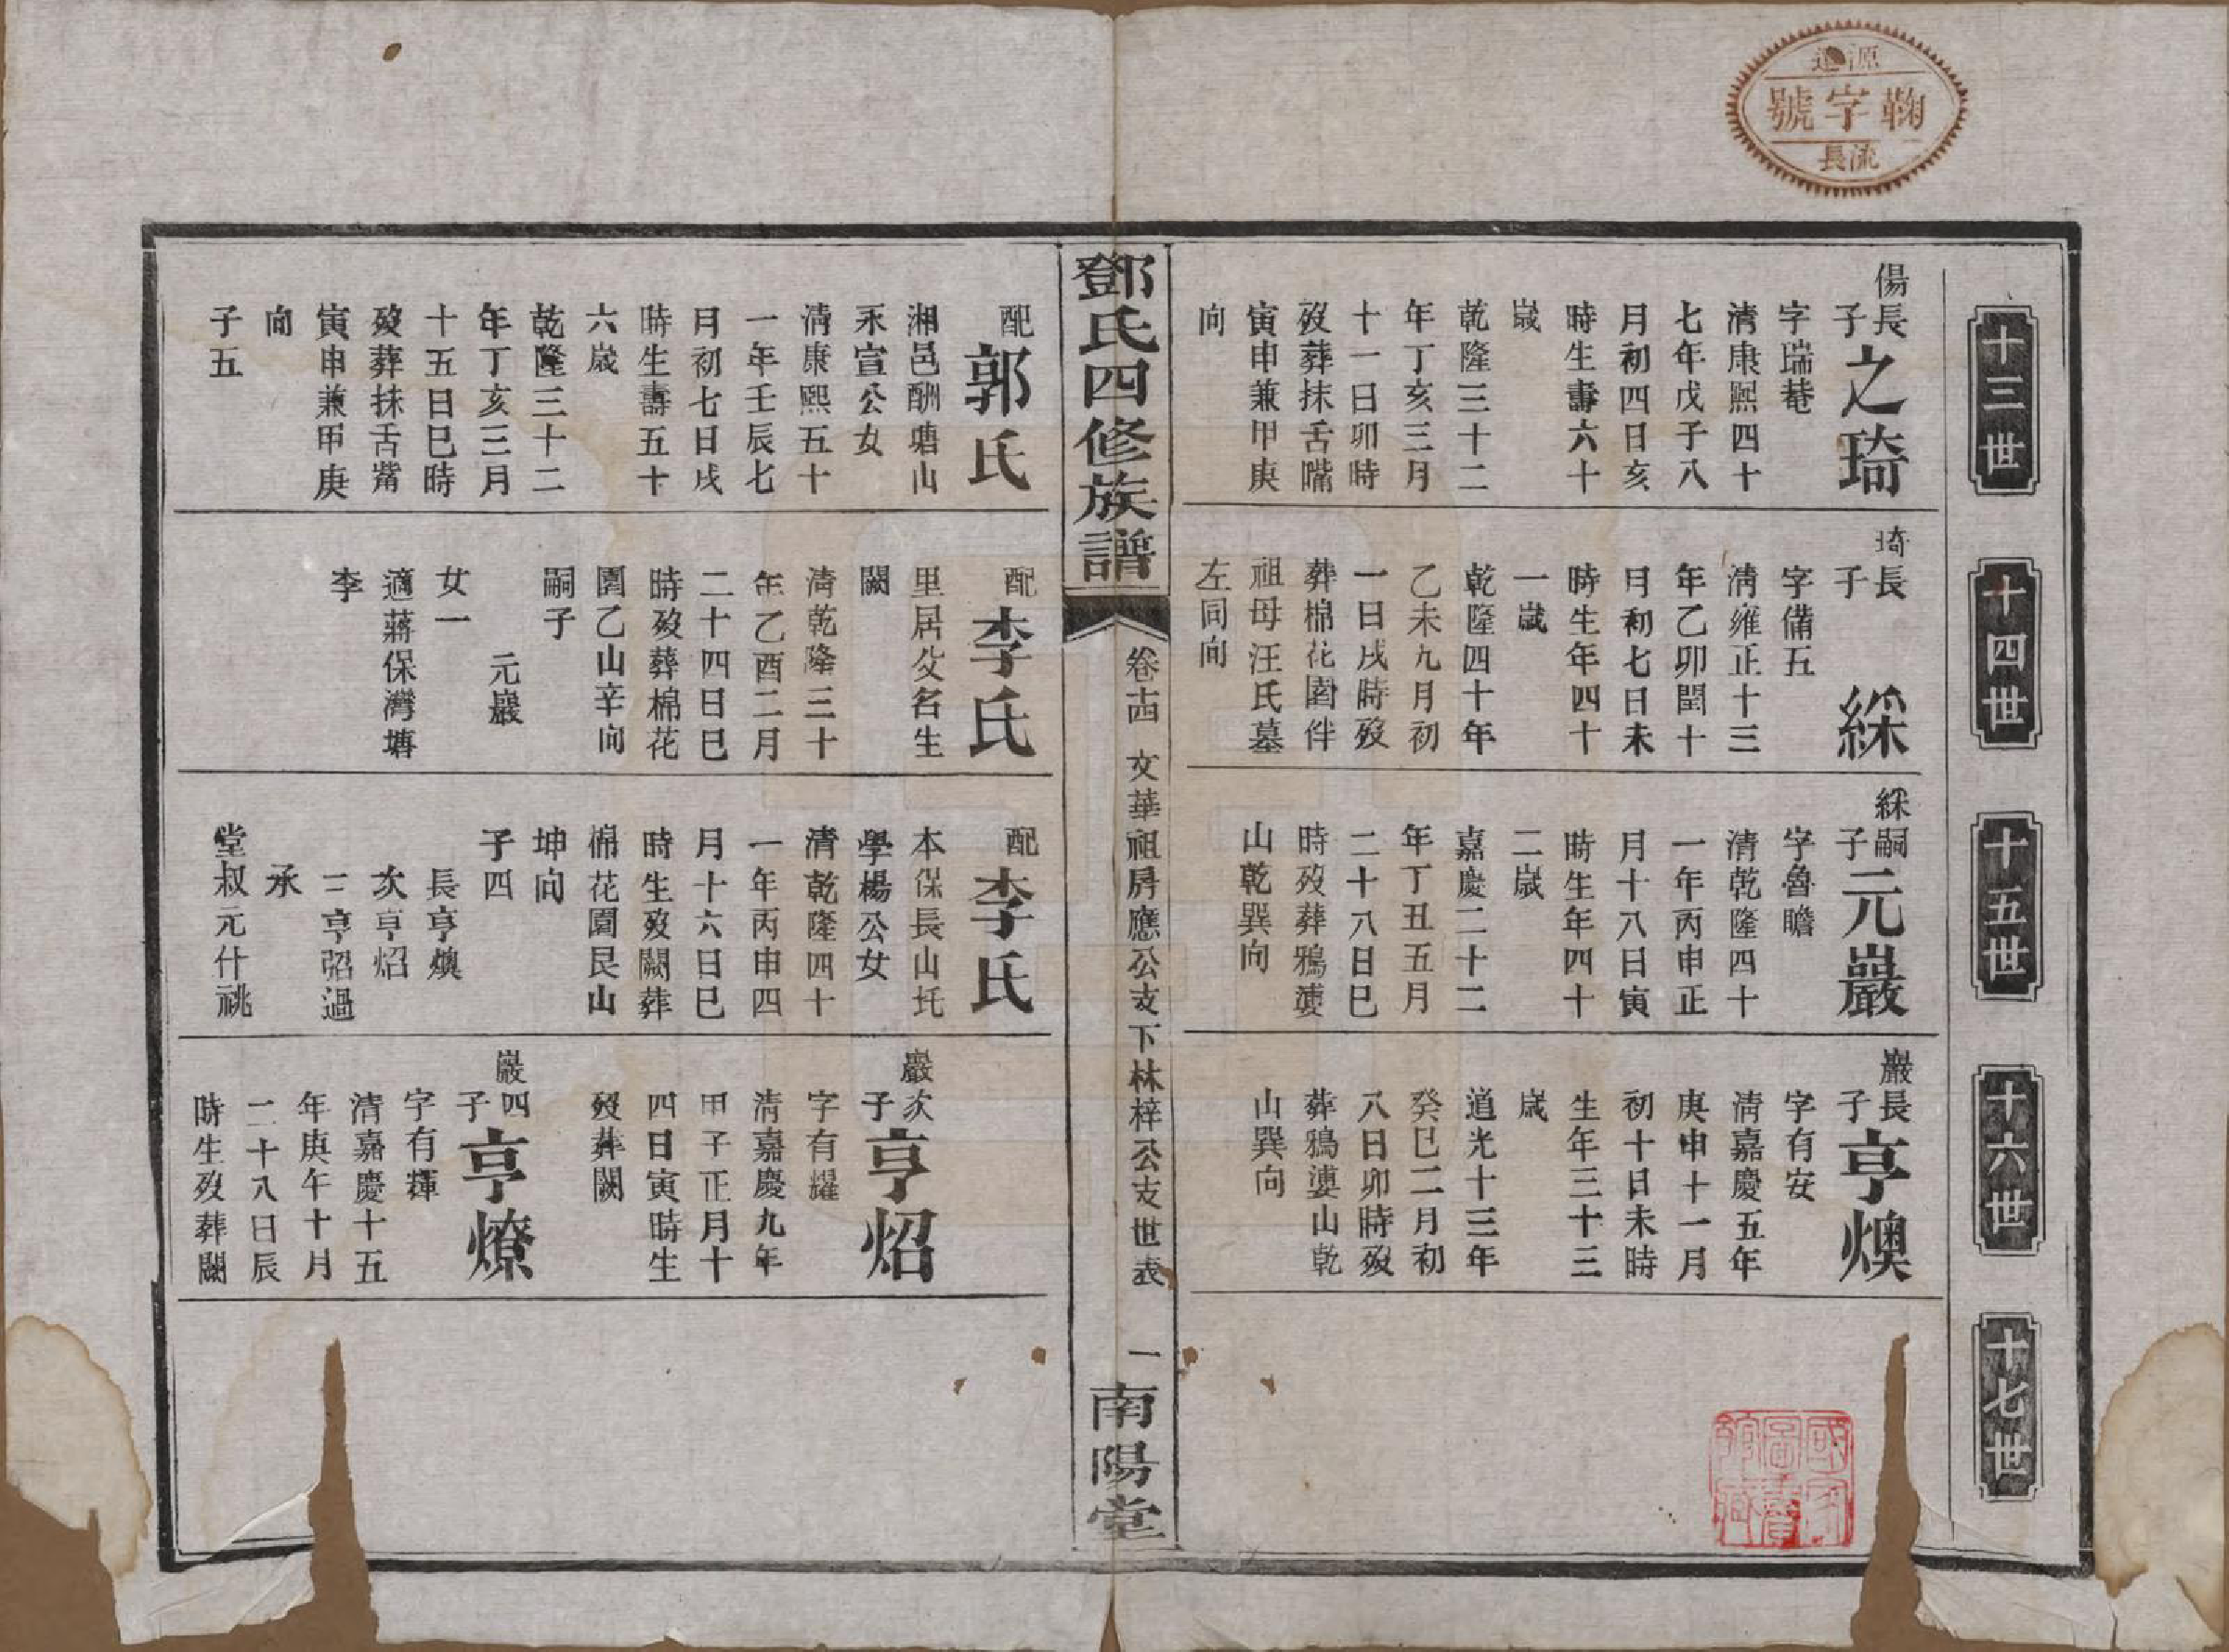 源遠
鞠字號
流長
十三世
十四世
十五世
十六世
十七世
傷長子之琦
字瑞菴
清康熙四十
七年戊子八
月初四日亥
時生壽六十
歲
乾隆三十二
年丁亥三月
十一日卯時
歿葬抹舌嘴
寅申兼甲庚
向
琦長子綵
字備五
清雍正十三
年乙卯閏十
月初七日未
時生年四十
一歲
乾隆四十年
乙未九月初
一日戌時歿
葬棉花園伴
祖母汪氏墓
左同向
綵嗣子元巖
字魯瞻
清乾隆四十
一年丙申正
月十八日寅
時生年四十
二歲
嘉慶二十二
年丁丑五月
二十八日巳
時歿葬鴉漊
山乾巽向
巖長子亨燠
字有安
清嘉慶五年
庚申十一月
初十日未時
生年三十三
歲
道光十三年
癸巳二月初
八日卯時歿
葬鴉漊山乾
山巽向
鄧氏四修族譜
卷十四 文華祖房應公支下林梓公支世表 一
南陽堂
配郭氏
湘邑酬塘山
永宣公女
清康熙五十
一年壬辰七
月初七日戌
時生壽五十
六歲
乾隆三十二
年丁亥三月
十五日巳時
歿葬抹舌觜
寅申兼甲庚
向
子五
配李氏
里居父名生
闕
清乾隆三十
年乙酉二月
二十四日巳
時歿葬棉花
園乙山辛向
嗣子
元巖
女一
適蔣保灣塘
李
配李氏
本保長山圫
學楊公女
清乾隆四十
一年丙申四
月十六日巳
時生歿闕葬
棉花園艮山
坤向
子四
長亨燠
次亨炤
三亨弨過
承
堂叔元什祧
巖次子亨炤
字有耀
清嘉慶九年
甲子正月十
四日寅時生
歿葬闕
巖四子亨燎
字有輝
清嘉慶十五
年庚午十月
二十八日辰
時生歿葬闕
國家圖書館藏